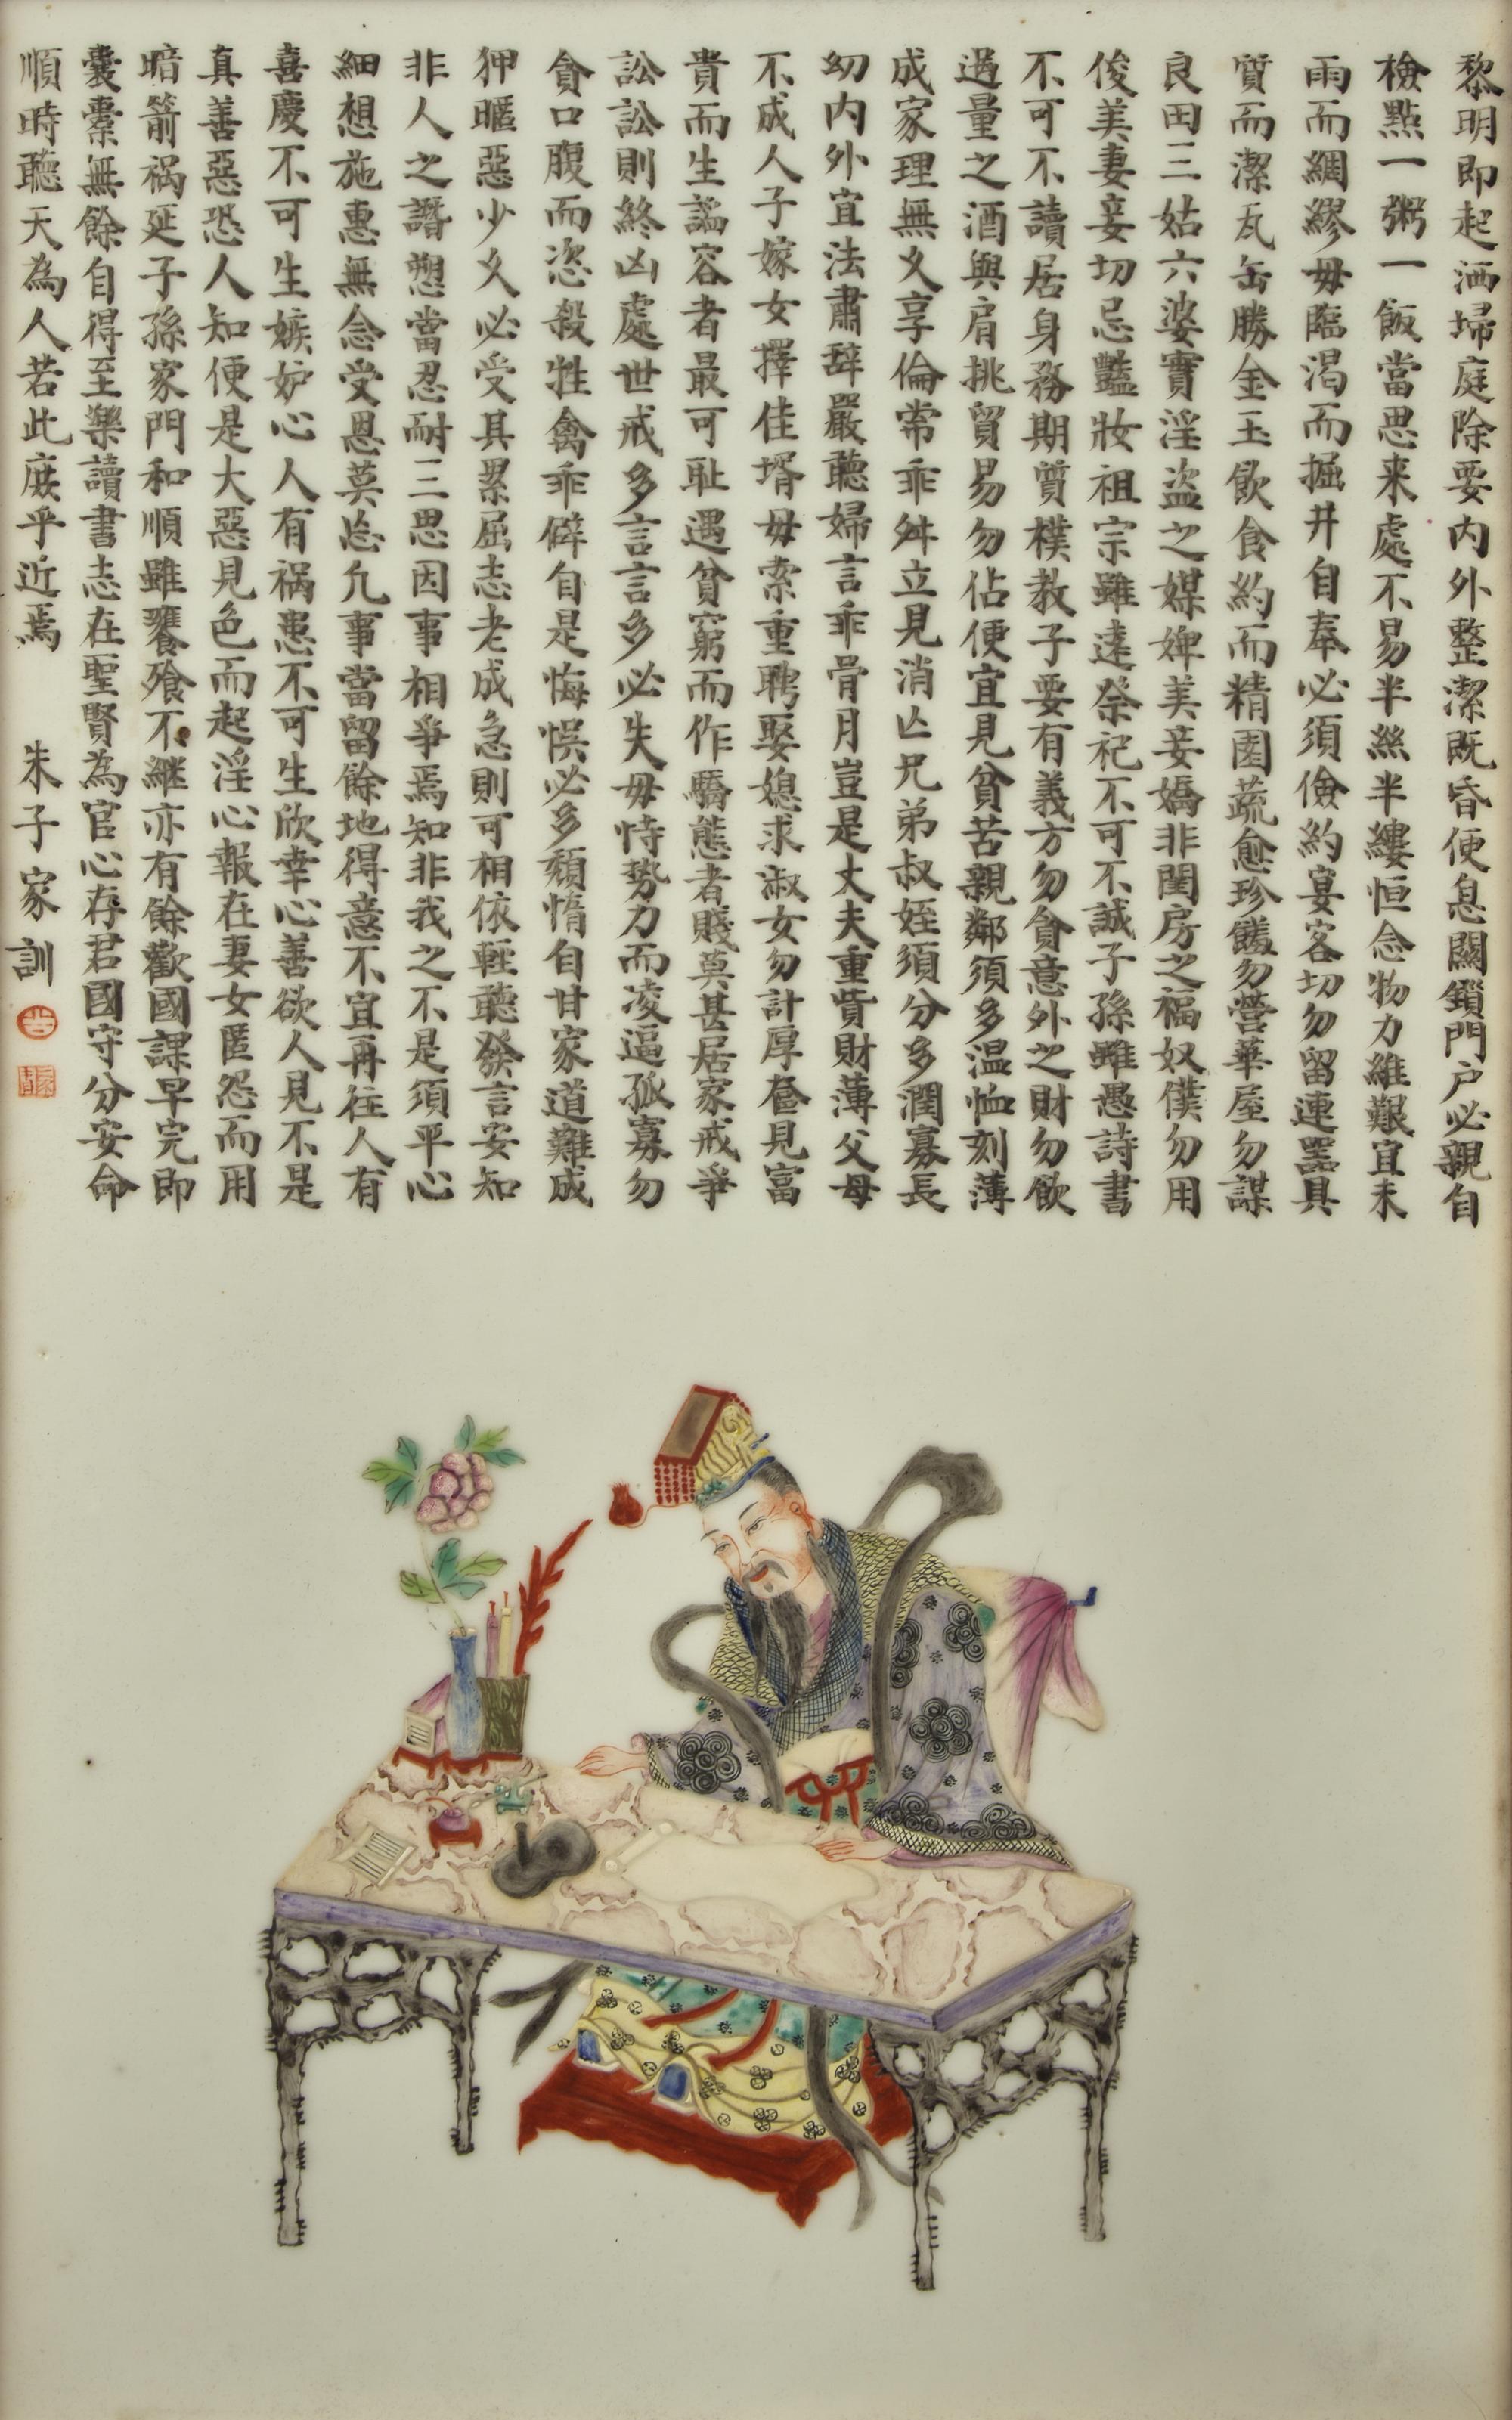 黎明即起洒埽庭除要内外整潔既昏便息關鎖門户必親自
檢點一粥一飯當思来處不易半絲半縷恒念物力維艱宜未
雨而綢繆毋臨渴而掘井自奉必須儉約宴客切勿留連噐具
質而潔瓦缶勝金玉飲食約而精園蔬愈珍饈勿營華屋勿謀
良田三姑六婆實淫盗之媒婢美妾嬌非閨房之福奴僕勿用
俊美妻妾切忌豔妝祖宗雖遠祭祀不可不誠子孫雖愚詩書
不可不讀居身務期質樸教子要有義方勿貪意外之財勿飲
過量之酒與肩挑貿易勿佔便宜見貧苦親鄰須多温恤刻薄
成家理無久享倫常乖舛立見消亡兄弟叔姪須分多潤寡長
幼内外宜法肅辞嚴聽婦言乖骨月豈是丈夫重貲財薄父母
不成人子嫁女擇佳壻毋索重聘娶媳求淑女勿計厚奩見富
貴而生謟容者最可耻遇貧窮而作驕態者賤莫甚居家戒爭
訟訟則終凶處世戒多言言多必失毋恃勢力而凌逼孤寡勿
貪口腹而恣殺牲禽乖僻自是悔悞必多頹惰自甘家道難成
狎暱惡少久必受其累屈志老成急則可相依輕聽發言安知
非人之譖愬當忍耐三思因事相爭焉知非我之不是須平心
細想施惠無念受恩莫忘凢事當留餘地得意不宜再往人有
喜慶不可生嫉妒心人有禍患不可生欣幸心善欲人見不是
真善惡恐人知便是大惡見色而起淫心報在妻女匿怨而用
暗箭禍延子孫家門和順雖饔飱不継亦有餘歡國課早完即
囊橐無餘自得至樂讀書志在聖賢為官心存君國守分安命
順時聽天為人若此庻乎近焉　朱子家訓